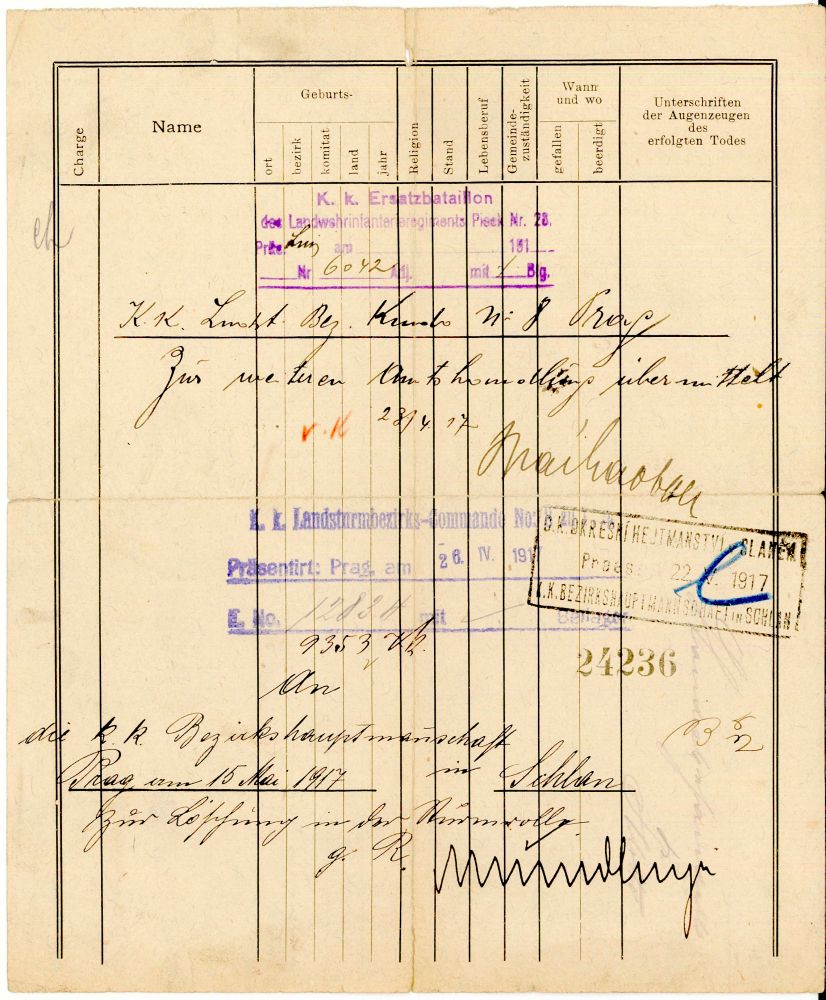 Charge
Name
Geburts-
ort
bezirk
komitat
land
jahr
Religion
Stand
Lebensberuf
Gemeinde-
zuständigkeit
Wann
und wo
gefallen
beerdigt
Unterschriften
der Augenzeugen
des
erfolgten Todes
K. k. Ersatzbataillon
des Landwehrinfanterieregiments Pisek Nr. 28.
Präs. am 191
Nr 6042 Adj. mit 1 Blg.
K. K. Ldst. Bez. Kmdo Nr 8 Prag
Zur weiteren Amtshandlung übermittelt
23/4 17
v. K
K. k. Landsturmbezirks-Commando No: 8
Präsentirt: Prag, am 26. IV. 1917
E. No. 12834 mit Beilagen
C.K. OKRESNÍ HEJTMANSTVÍ SLANÉM
Praes. 22 V. 1917
K.K. BEZIRKSHAUPTMANNSCHAFT in SCHLAN
9353
24236
An
die k. k. Bezirkshauptmannschaft
in Schlan
Prag, am 15 Mai 1917
zur Löschung in der Sturmrolle
g. R.